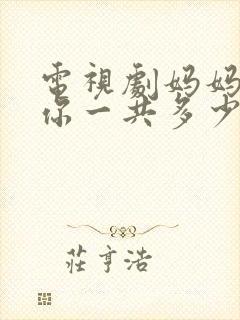 電視劇妈妈
你一共多少
莊亨浩